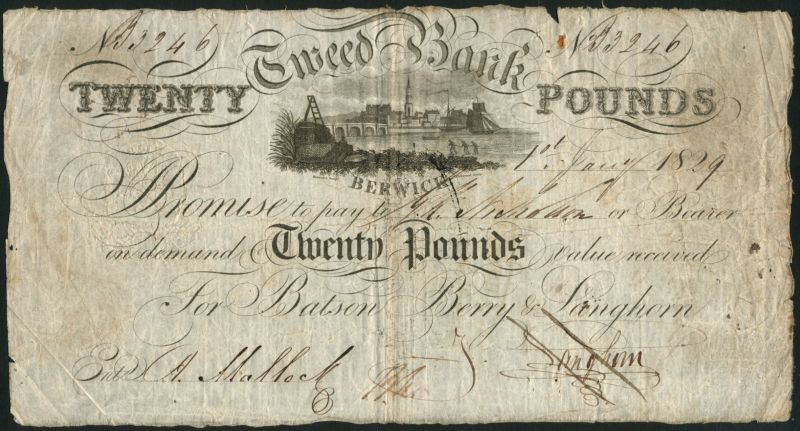 No 3246 No 3246
Tweed Bank
TWENTY POUNDS
BERWICK
1st Jany 1829
I Promise to pay to Nicholson or Bearer
on demand Twenty Pounds Value received
For Batson Berry & Langhorn
Entd A. Mallock Langhorn